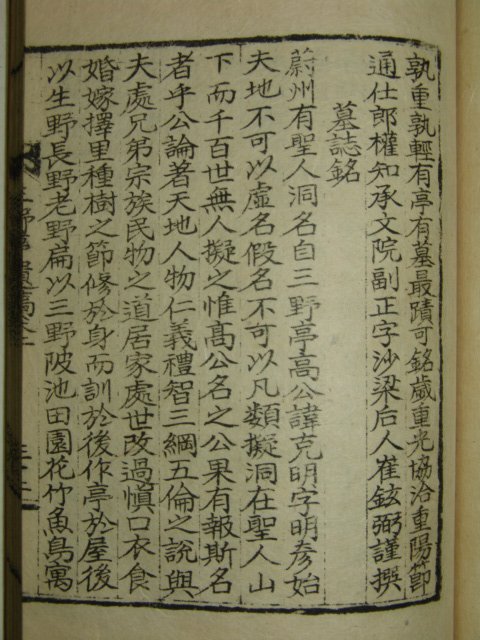 孰重孰輕有亭有墓最蹟可銘歲重光協洽重陽節
通仕郎權知承文院副正字沙梁后人崔鉉弼謹撰
墓誌銘
蔚州有聖人洞名自三野亭高公諱克明字明彦始
夫地不可以虛名假名不可以凡類擬洞在聖人山
下而千百世無人擬之惟高公名之公果有報斯名
者乎公論著天地人物仁義禮智三綱五倫之說與
夫處兄弟宗族民物之道居家處世改過愼口衣食
婚嫁擇里種樹之節修於身而訓於後作亭於屋後
以生野長野老野扁以三野陂池田園花竹魚鳥寓
三野亭遺稿卷